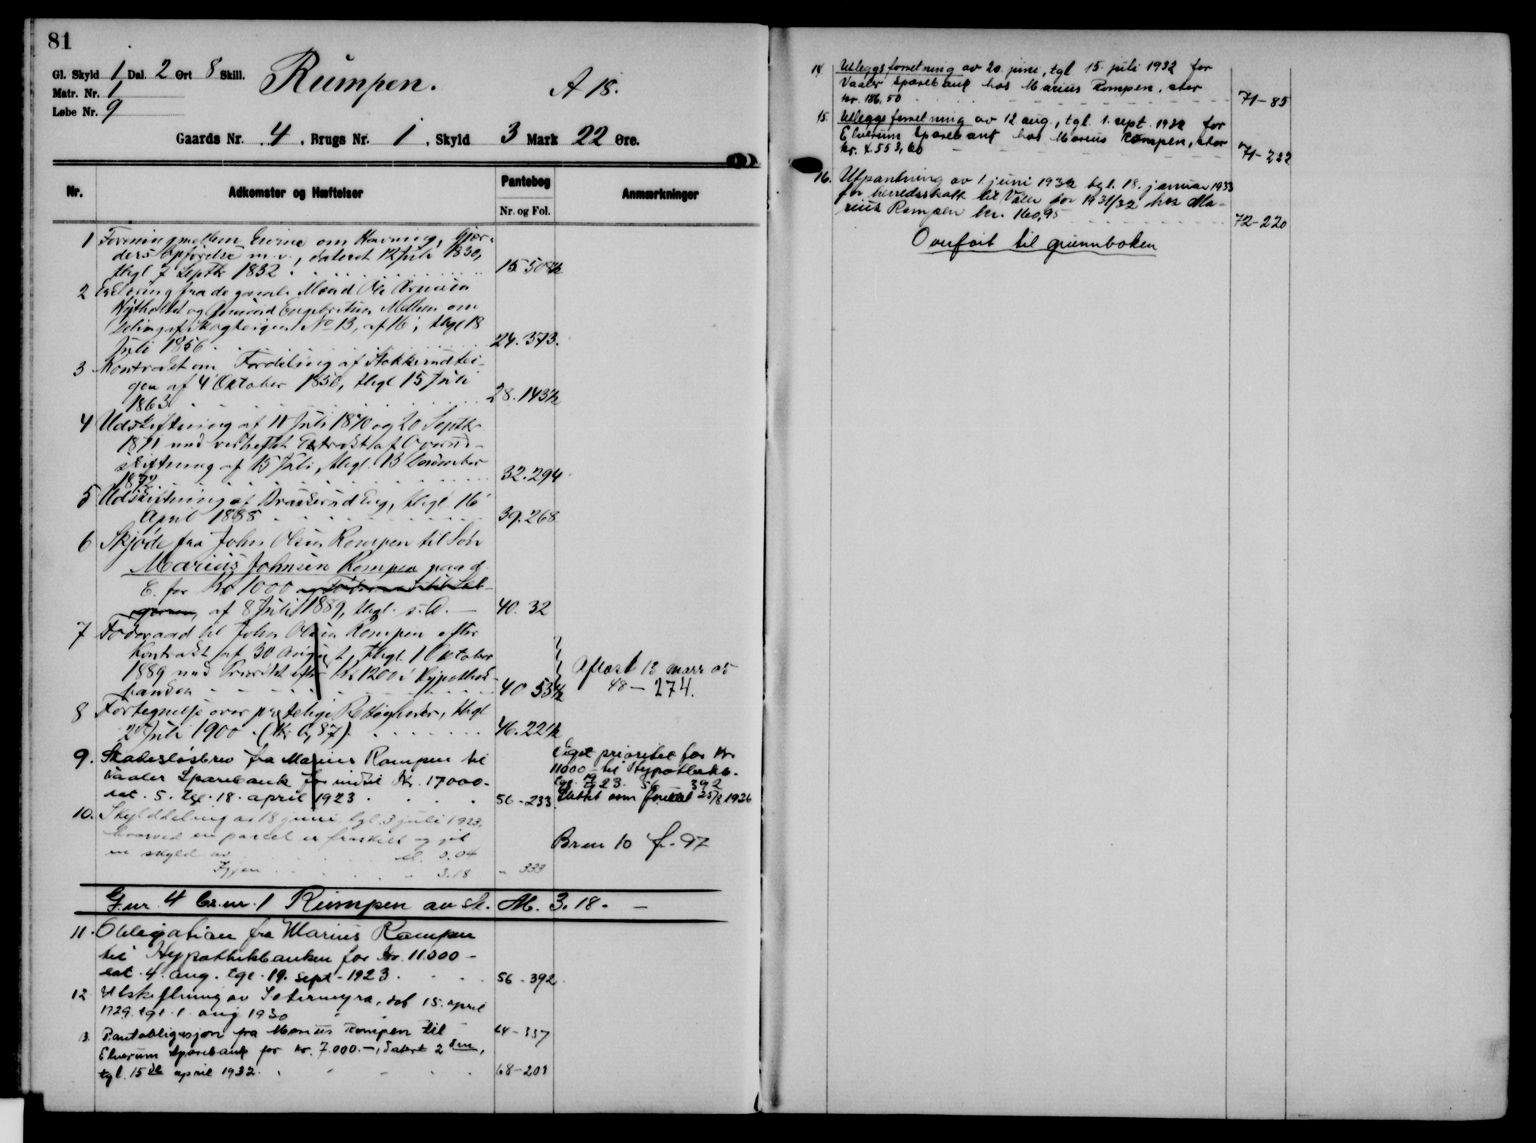 81
Gl. Skyld 1 Dal. 2 Ort 8 Skill.
Matr. Nr. 1
Løbe Nr. 9
Rumpen.
A 18.
Gaards Nr. 4, Brugs Nr. 1, Skyld 3 Mark 22 Øre.
Nr.
Adkomster og Hæftelser
Pantebog
Nr. og Fol.
Anmærkninger
1 Foreningmellem Eierne om Havning, Gjær-
ders Opførelse m.v., dateret 12 Juli 1830,
thgl 7 Septbr 1832 15 504b
2 Erklæring fra de gamle Mænd Ole Arnesen
og Engebretsen Mellem om
Deling af Skogteigen No 13, af 16, thgl 18
Juli 1856 24. 373.
3 Kontrakt om Fordeling af Stokkerudtei-
gen af 4 Oktober 1850, thgl 15 Juli
1863 28. 143b
4 Udskiftning af 11 Juli 1870 og 20 Septbr
1871 med vedheftet Extrakt af Overud-
skiftning af 15 Juli, thgl. 13 December
1872 32. 294
5 Udskiftning af Eng, thgl 16
April 1885 39. 268
6 Skjøde fra John Olsen Rompen til Søn
Marius Johnsen Rompen paa d
E. for Kr 1000
af 8 Juli 1889, thgl. s. D. — 40. 32
7 Føderaad til John Olsen Rompen efter
Kontrakt af 30 August, thgl. 1 Oktober
1889 med Prioritet efter Kr 1200 i Hypothek-
banken 40 53b
Aflæst 12 mars 05
48 — 274.
8 Fortegnelse over Rettigheder, thgl
20 Juli 1900. 46. 22b
9. Skadesløsbrev fra Marius Rompen til
Vaaler Sparebank for indtil Kr. 17000.-
dat. 5. tgl. 18. april 1923 56 - 233
Viget prioritet for Kr
11000 - til Hypothekb.
tgl. 19/9 23. 56 392
Slettet som 25/8 1926
10. Skylddeling av 18 juni, tgl. 3 juli 1923,
hvorved en parcel er fraskilt og git
en skyld av M. 0,04
Igjen " 3.18 " 333
Brnr 10 f. 97
G.nr. 4 br.nr. 1 Rumpen av sk. M. 3.18. —
11. Obligation fra Marius Rompen
til Hypothekbanken for Kr. 11.000 -
dat. 4. aug. tgl. 19. sept. 1923 56 - 392
12 Utskiftning av Setermyra, dat 15. april
1929. tgl. 1. aug 1930 64 - 337
13. Pantobligasjon fra Marius Rompen til
Elverum Sparebank for kr. 7.000.—, datert 2 den,
tgl. 15de april 1932. 68 - 201
14 Utleggsforretning av 20. juni, tgl 15. juli 1932 for
Vaaler Sparebank hos Marius Rompen, stor
kr. 186,50 71 - 85
15. Utleggsforretning av 12 aug., tgl. 1. sept. 1932 for
Elverum Sparebank hos Marius Rompen, stor
kr. 7.553,60 71 - 232
16. Utpantning av 1 juni 1932 tgl. 18. januar 1933
for herredsskatt til Våler for 1931/32 hos Ma-
rius Rompen kr. 160,95 72 - 220
Overført til grunnboken